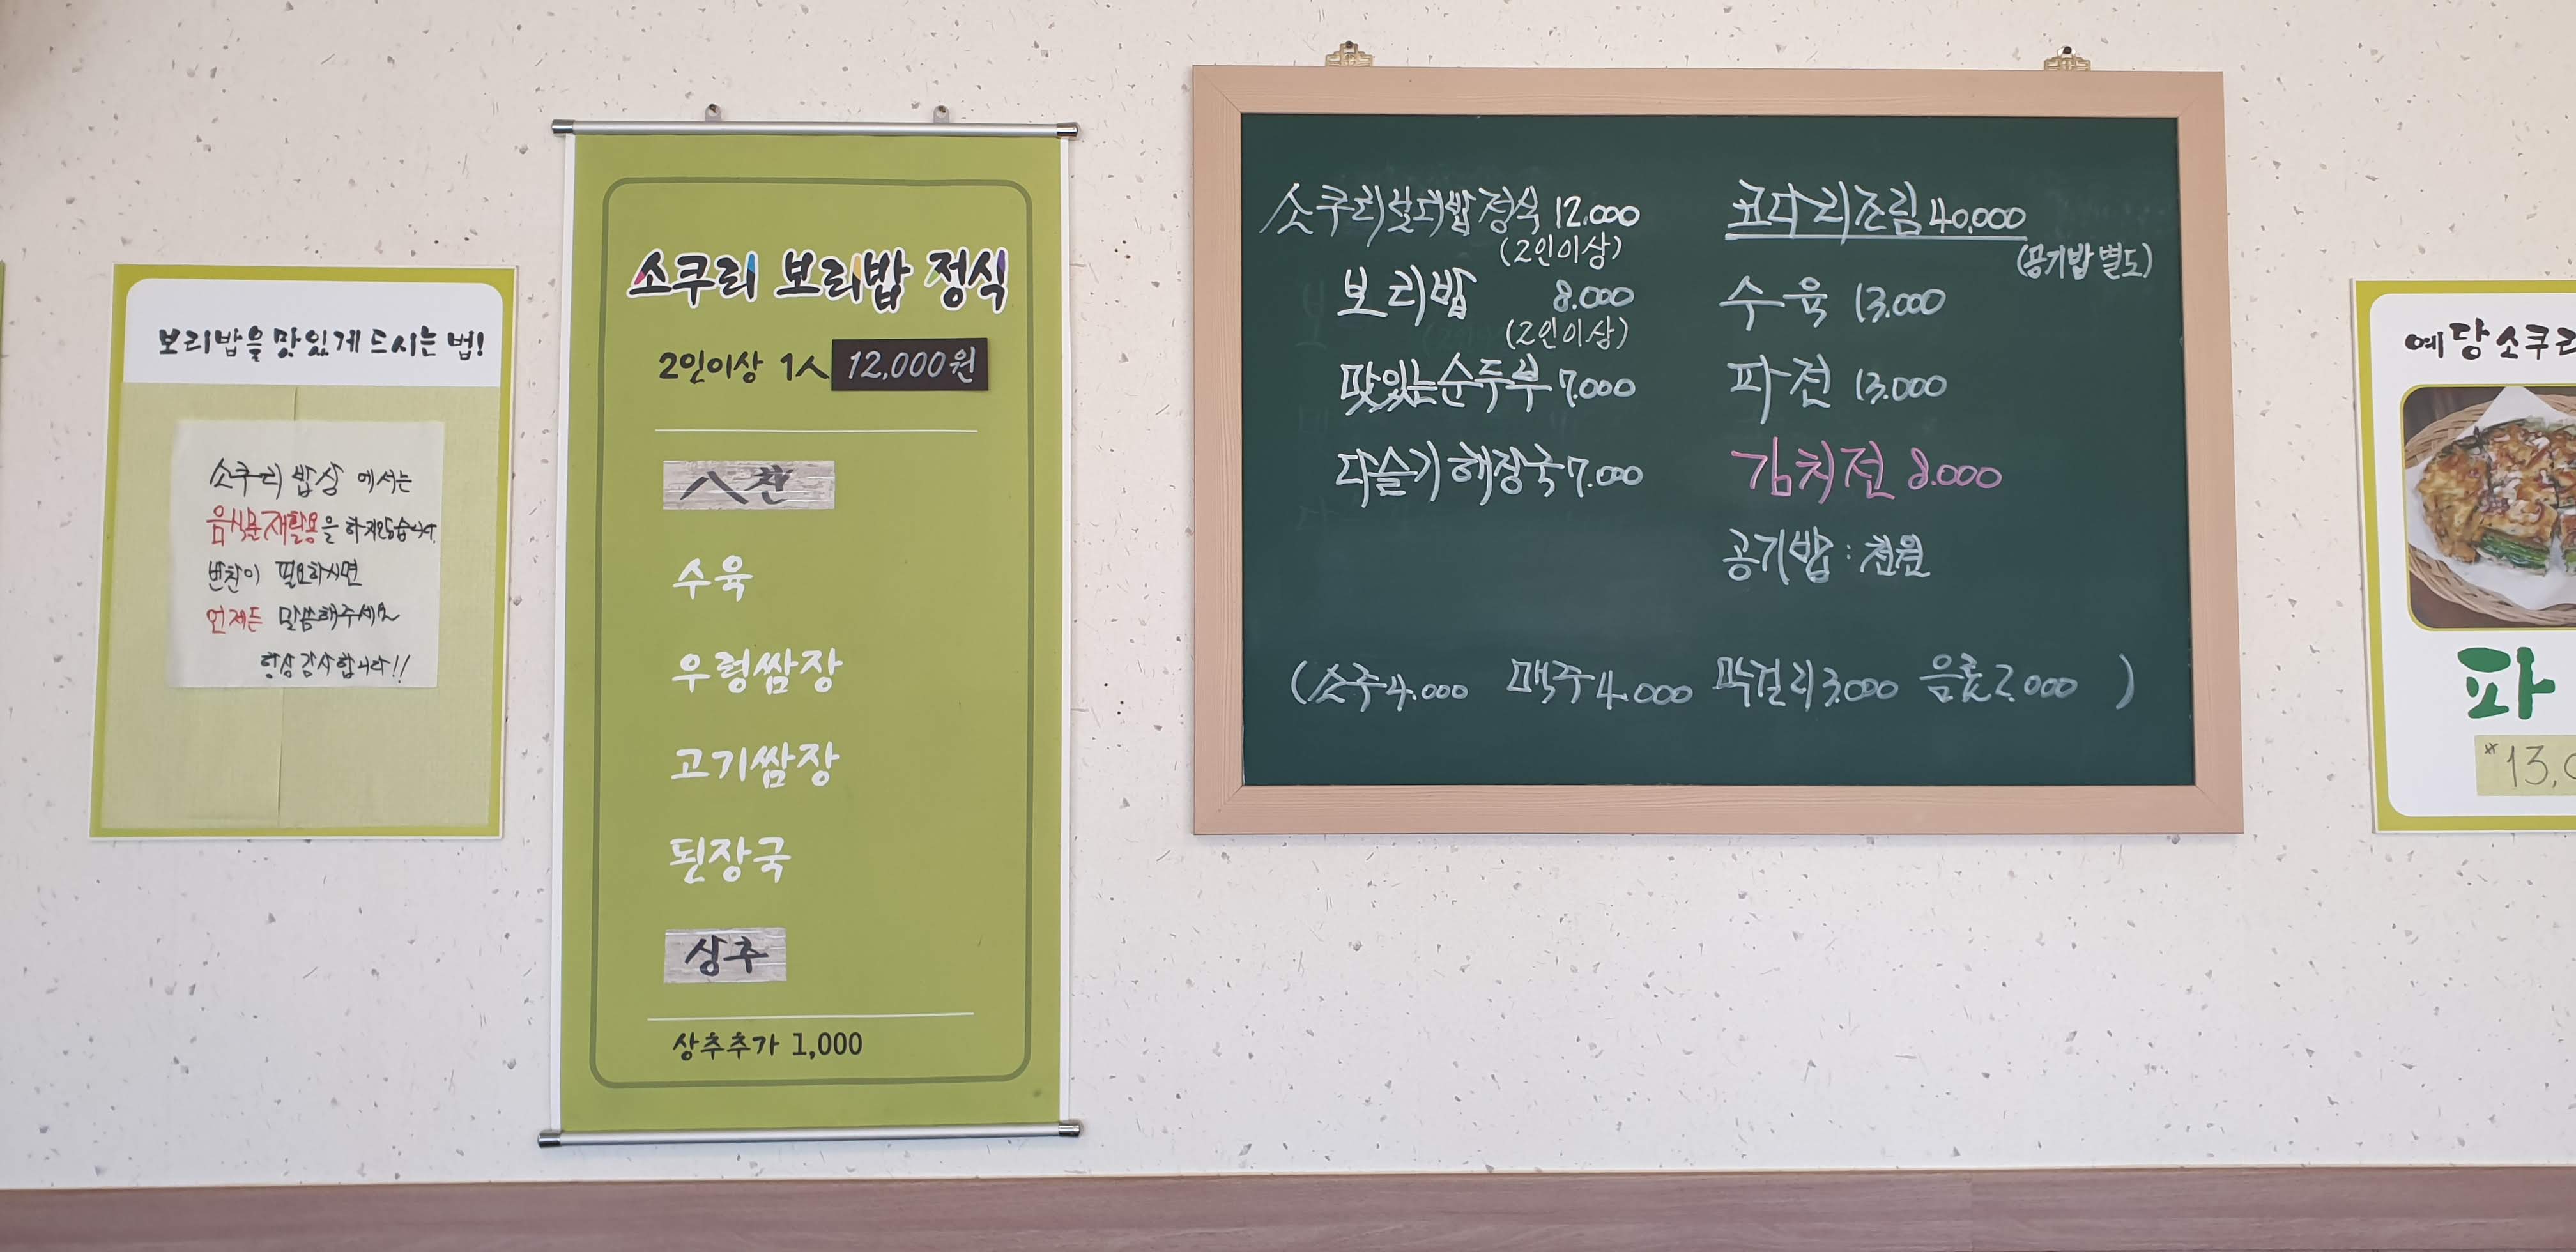 보리밥을 맛있게 드시는 법!
소쿠리 밥상 에서는
음식물재활용을 하지않습니다.
반찬이 필요하시면
언제든 말씀해주세요
항상감사합니다!!
소쿠리 보리밥 정식
2인이상 1人 12,000원
八찬
수육
우렁쌈장
고기쌈장
된장국
상추
상추추가 1,000
소쿠리보리밥정식 12.000
(2인이상)
보리밥 8.000
(2인이상)
맛있는순두부 7.000
다슬기해장국 7.000
코다리조림 40,000
(공기밥별도)
수육 13.000
파전 13.000
김치전 8.000
공기밥 : 천원
(소주4.000 맥주4.000 막걸리3.000 음료2.000 )
예당소쿠리
파